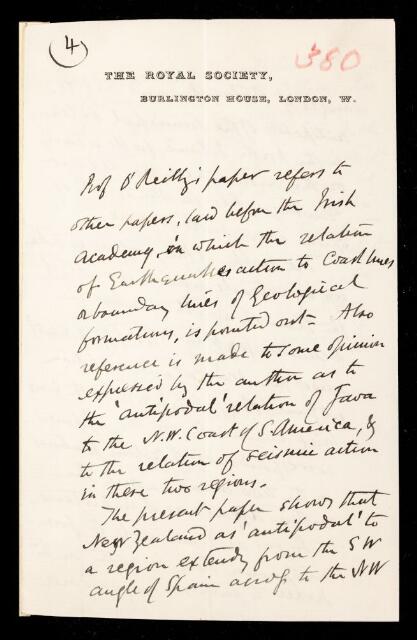 (4)
380
THE ROYAL SOCIETY,
BURLINGTON HOUSE, LONDON, W.
Prof O'Reilly's paper refers to
other papers, laid before the Irish
Academy, in which the relation
of Earthquake action to Coast lines
or boundary lines of Geological
formations, is pointed out. Also
reference is made to some opinion
expressed by the author as to
the 'antipodal' relation of Java
to the N.W. Coast of S. America, &
to the relation of seismic action
in these two regions.
The present paper shows that
New Zealand as 'antipodal' to
a region extendg from the SW
angle of Spain across to the NW